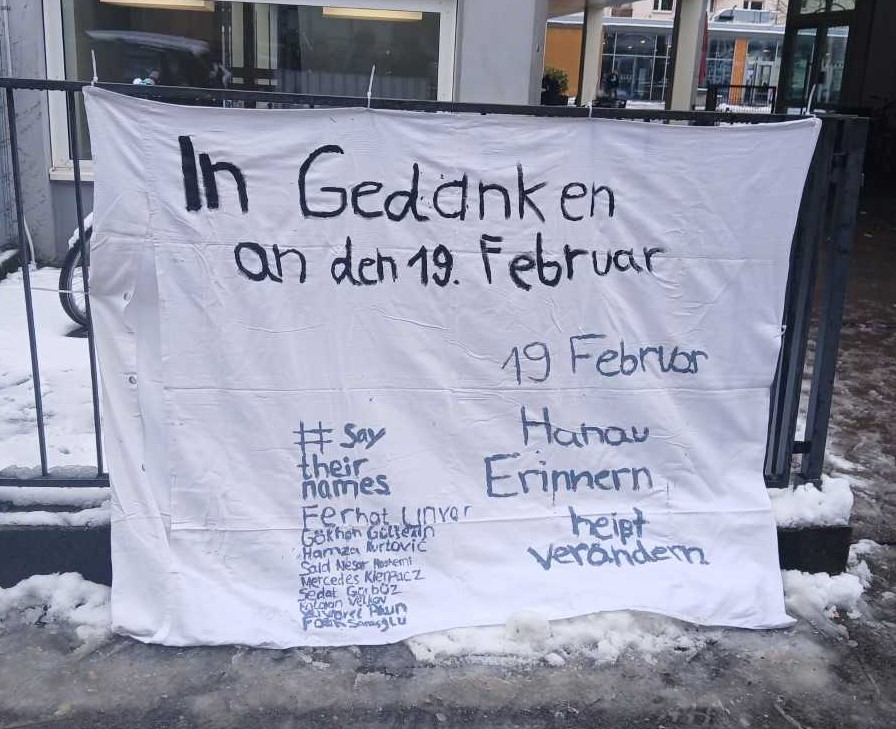 In Gedanken
an den 19. Februar
19 Februar
Hanau
Erinnern
heißt
verändern
# Say
their
names
Ferhat Unvar
Gökhan Gültekin
Hamza Kurtović
Said Nesar Hashemi
Mercedes Kierpacz
Sedat Gürbüz
Kaloyan Velkov
Viorel Păun
Fatih Saraçoğlu